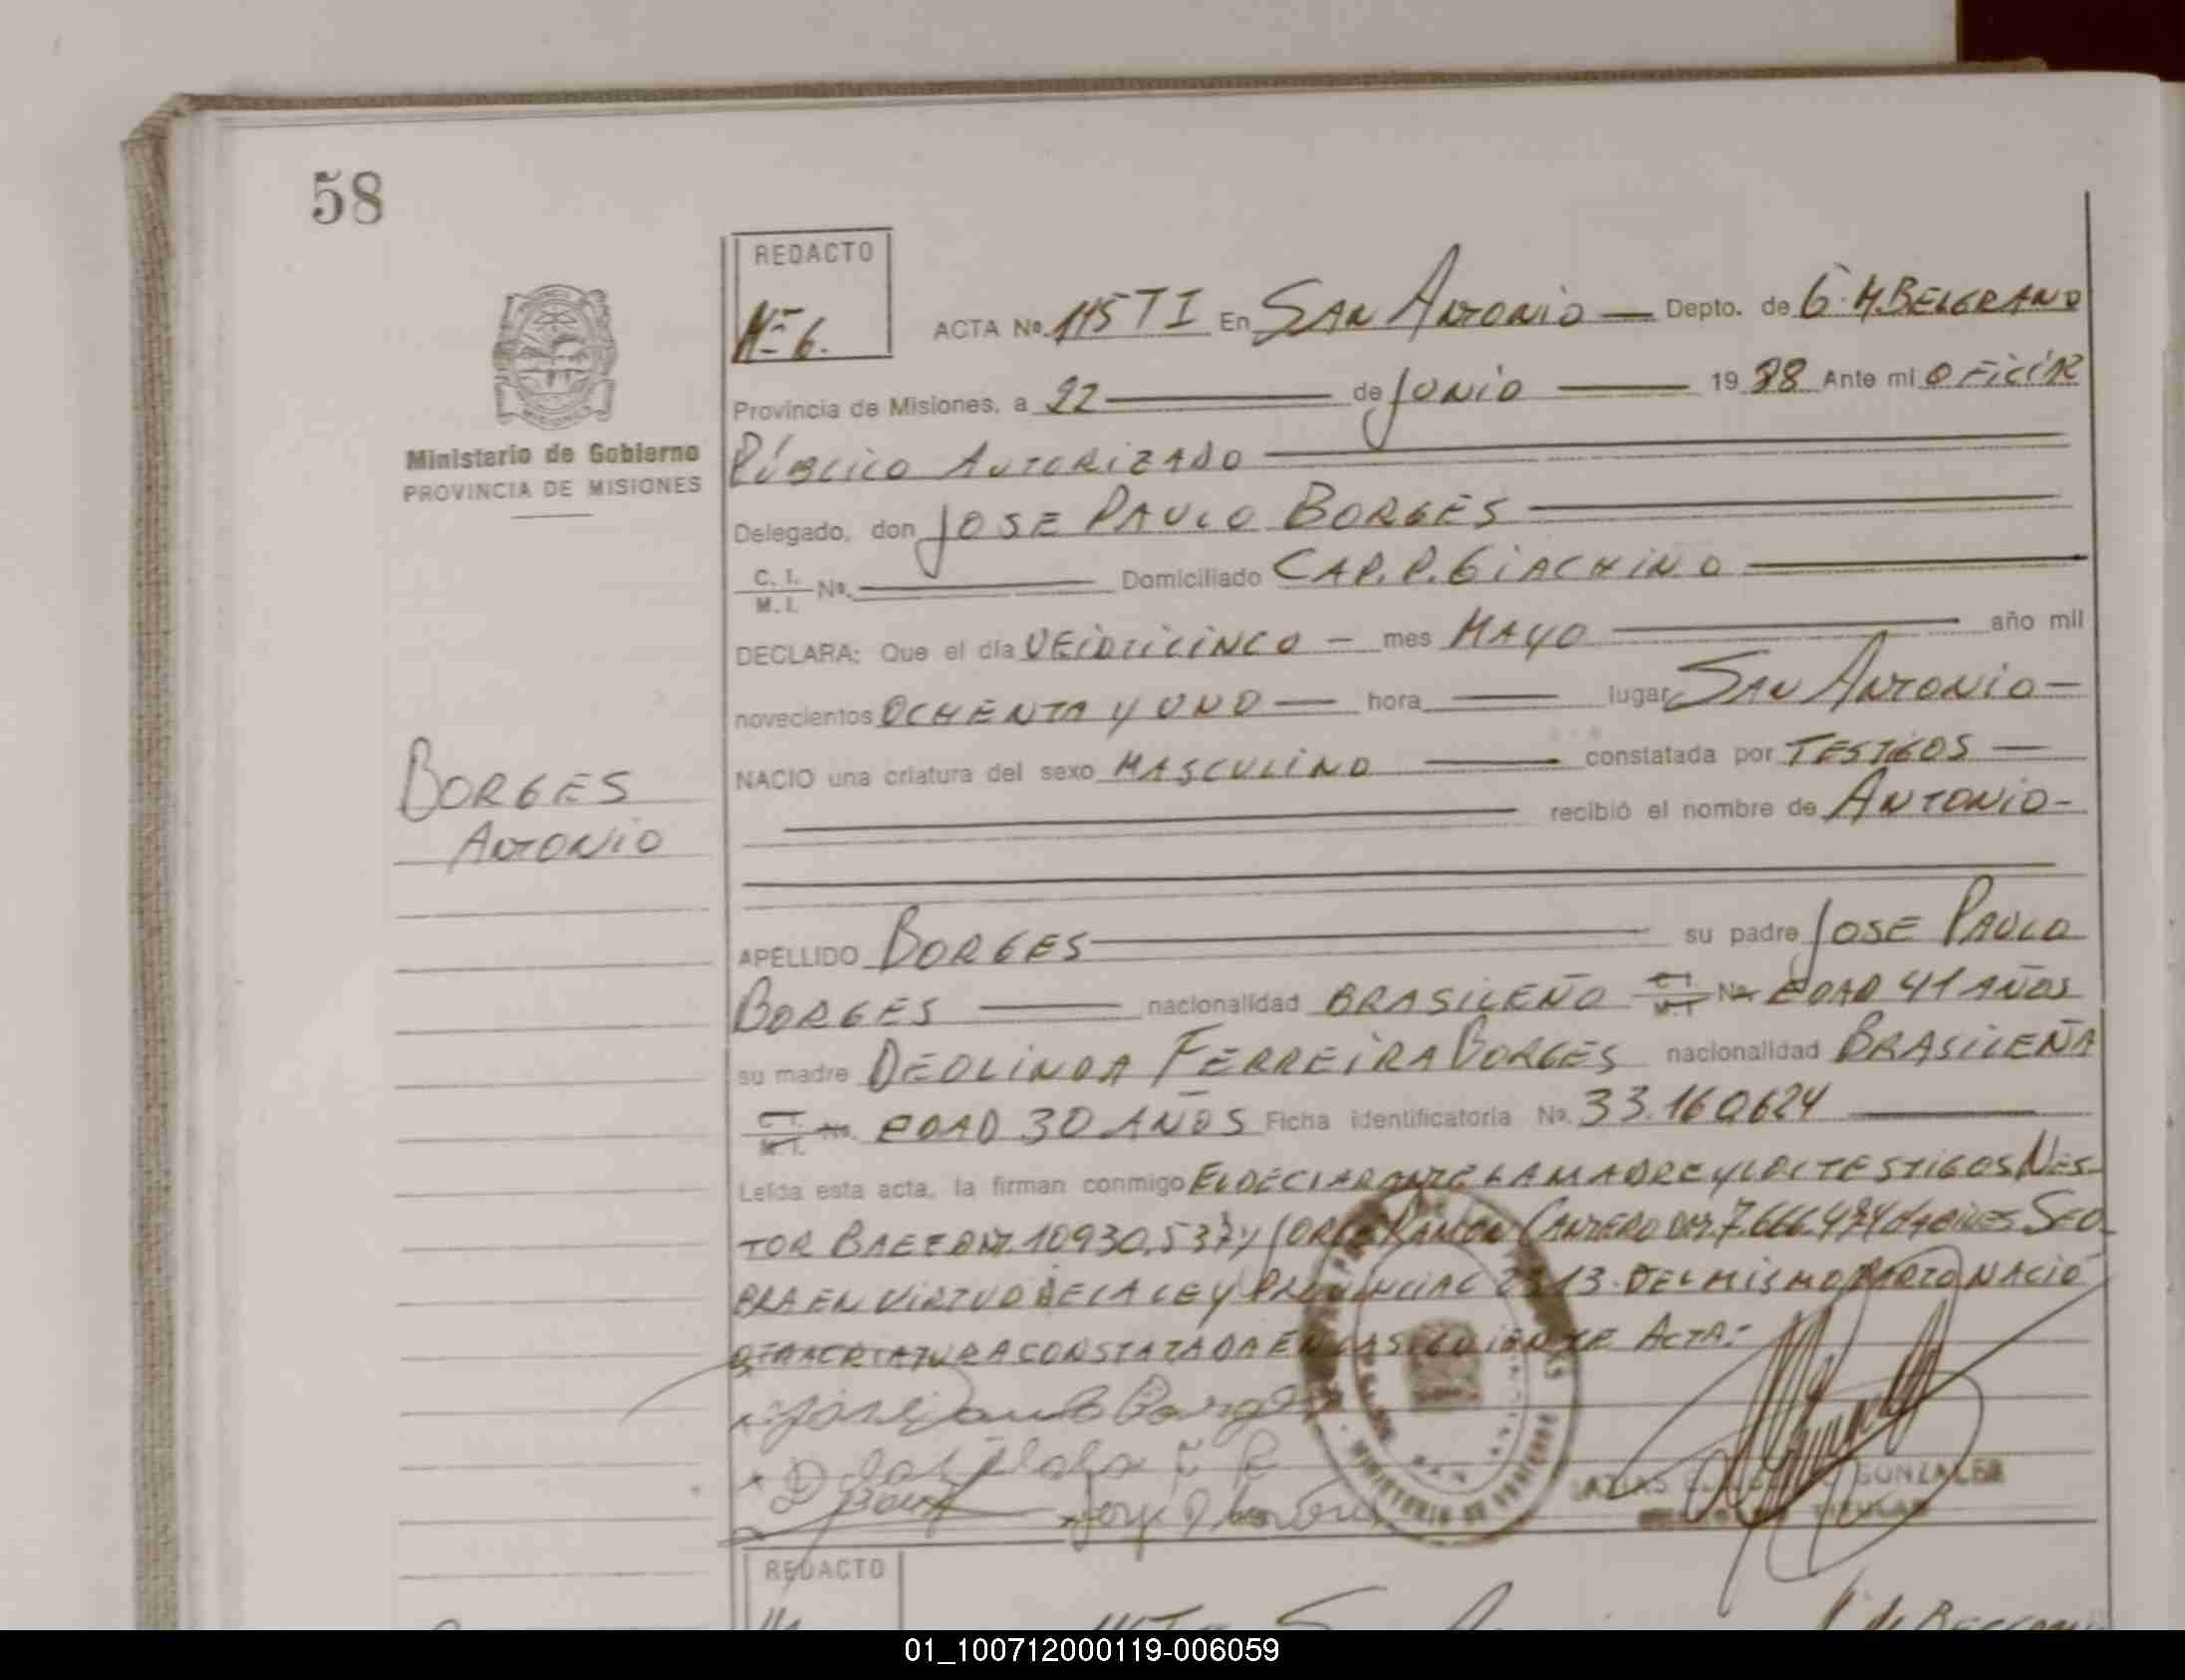 58
REDACTO
Nº 6.
ACTA Nº 115 T I En SAN ANTONIO — Depto. de G. M. BELGRANO
Provincia de Misiones, a 22 — de JUNIO — 19 88 Ante mi OFICIAL
PÚBLICO AUTORIZADO
Ministerio de Gobierno
PROVINCIA DE MISIONES
Delegado, don JOSE PAULO BORGES
C. I. / M. I. Nº. — Domiciliado CAP. P. GIACHINO
DECLARA: Que el día VEINTICINCO — mes MAYO — año mil
novecientos OCHENTA Y UNO — hora — lugar SAN ANTONIO —
NACIO una criatura del sexo MASCULINO — constatada por TESTIGOS —
BORGES
ANTONIO
— recibió el nombre de ANTONIO -
APELLIDO BORGES — su padre JOSE PAULO
BORGES — nacionalidad BRASILEÑO C.I. / M.I. Nº EDAD 41 AÑOS
su madre DEOLINDA FERREIRA BORGES nacionalidad BRASILEÑA
C.I. / M.I. Nº. EDAD 30 AÑOS Ficha identificatoria Nº. 33.160624
Leída esta acta, la firman conmigo EL DECLARANTE LA MADRE Y LOS TESTIGOS NES-
TOR BAEZ DNI. 10930.537 y JORGE RAMON CANTERO DNI. 7.666.474 SEO
BRA EN VIRTUD DE LA LEY PROVINCIAL 2313. DEL MISMO PARTO NACIO
OTRA CRIATURA CONSTATADA EN LA SIGUIENTE ACTA.-
Jose Paulo Borges
MINISTERIO DE GOBIERNO
GONZALEZ
TITULAR
REDACTO
01_100712000119-006059